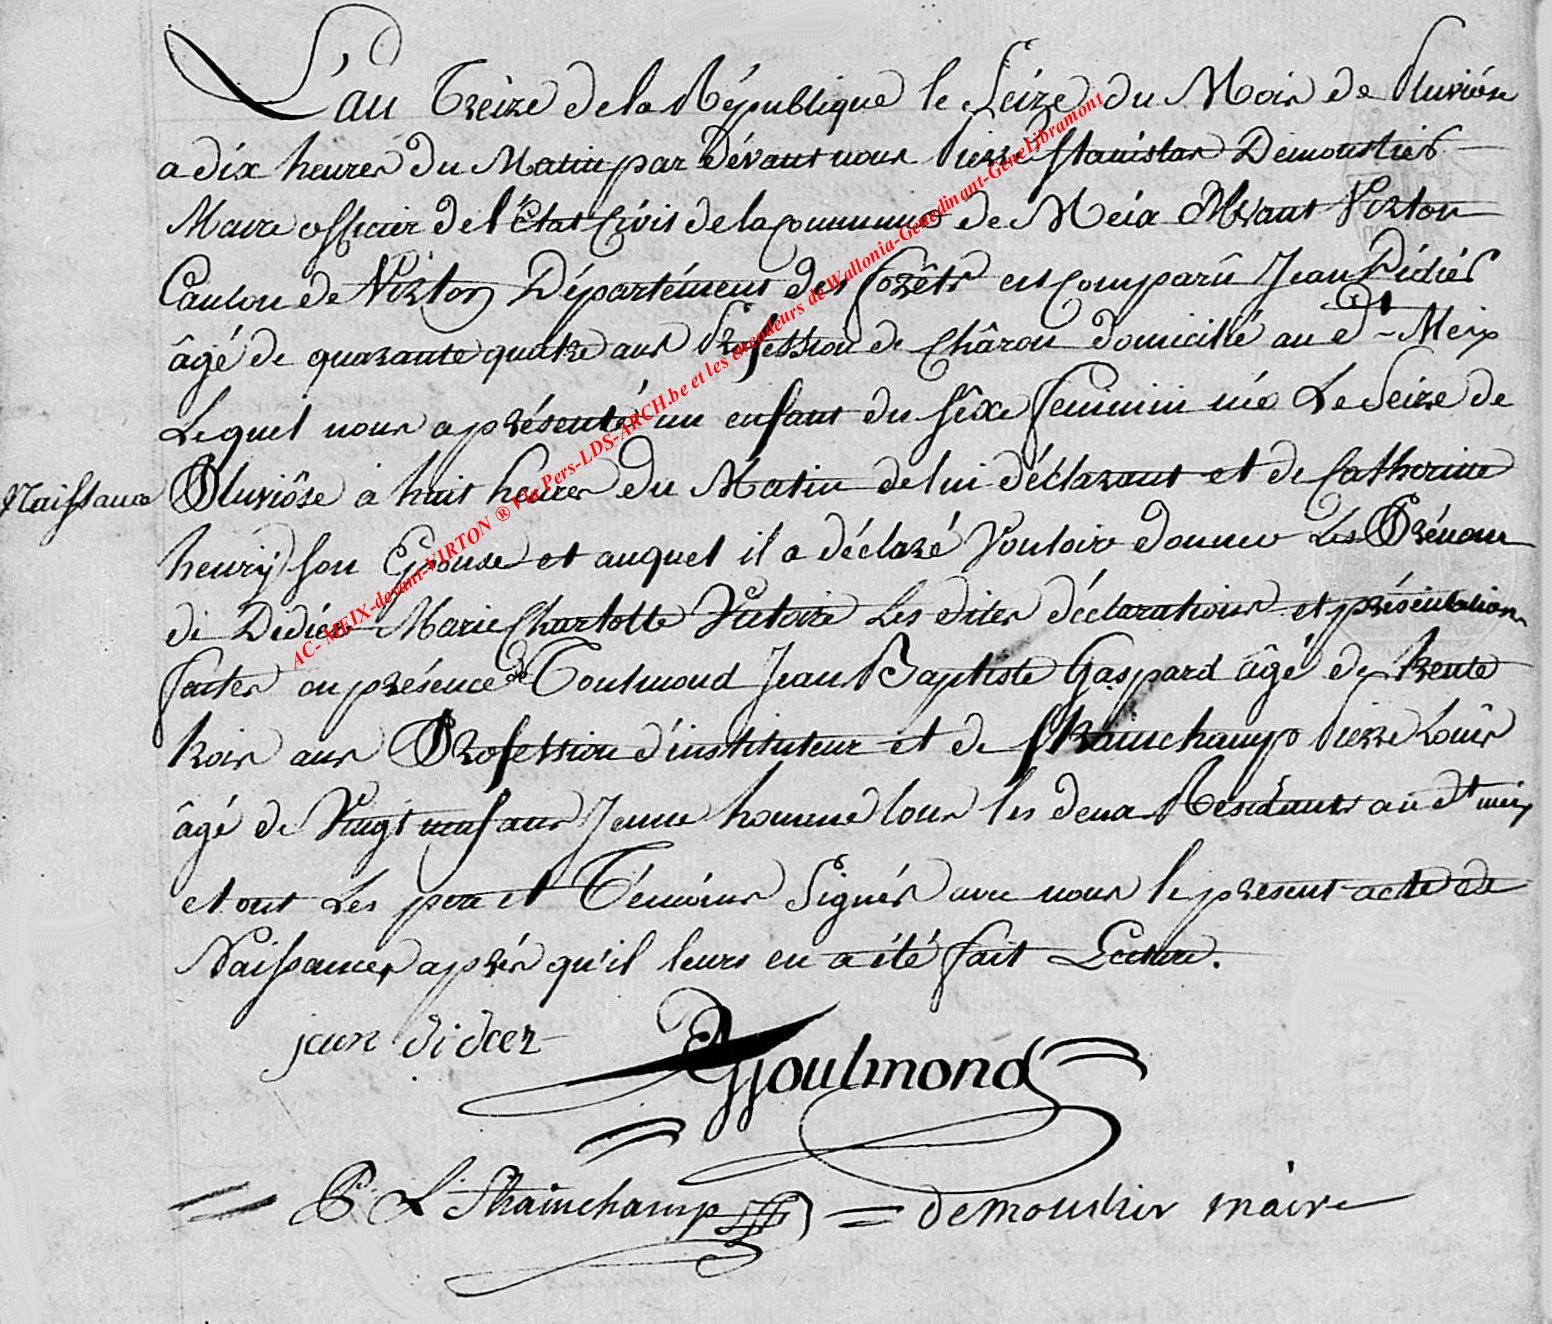 L'an Treize de la République le Seize du Mois de Pluviôse
a dix heures du Matin par dévant nous Pierre Stanislas Demoustier
Maire officier de l'État Civil de la Commune de Meix dvant Virton
Canton de Virton Département des Forêts est Comparû Jean Didier
âgé de quarante quatre ans Profession de Châron domicilié au dt Meix
Lequel nous a présenté un enfant du sêxe feminin née Le Seize de
Naissance
Pluviôse a huit heures du Matin de lui déclarant et de Catherine
henrÿ son Epouse et auquel il a déclaré Vouloir donner Les Prénoms
de Didier Marie Charlotte Victoire Les dites déclarations et présentation
faites en présence de Toulmond Jean Baptiste Gaspard âgé de trente
trois ans Profession d'instituteur et de Strainchamp Pierre Loûis
âgé de Vingt neuf ans Jeune homme tous les deux Residants au dt meix
et ont Les pere et Témoins Signés avec nous le present acte de
Naissances aprés qu'il leurs en a été fait Lecture.
jean didier
Toulmond
P L Strainchamp
demoustier maire
AC- MEIX-devant-VIRTON ® Via Pers-LDS-ARCH.be et les encodeurs de Wallonia-Genedinant-GeneLibramont